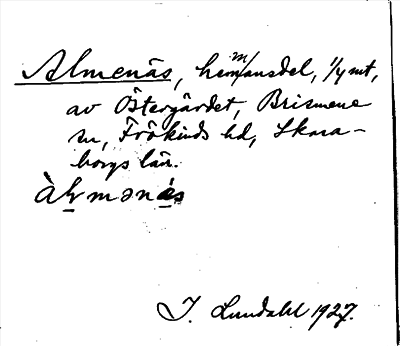 Almenäs, hemmansdel, 1/4 mt,
av Östergärdet, Brismene
sn, Frökinds hd, Skara-
borgs län.
I. Lundahl 1927.